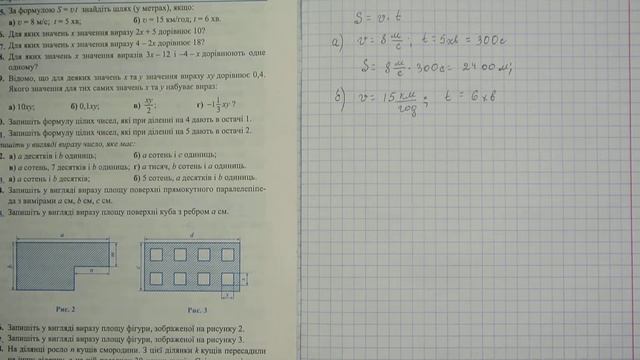 За формулою S = vt знайдіть шлях (у метрах), якщо:
а) v = 8 м/с; t = 5 хв; б) v = 15 км/год; t = 6 хв.
Для яких значень x значення виразу 2x + 5 дорівнює 10?
Для яких значень x значення виразу 4 – 2x дорівнює 18?
Для яких значень x значення виразів 3x – 12 і –4 – x дорівнюють одне
одному?
Відомо, що для деяких значень x та y значення виразу xy дорівнює 0,4.
Якого значення для тих самих значень x та y набуває вираз:
а) 10xy; б) 0,1xy; в) xy/2; г) –1 1/3 xy ?
Запишіть формулу цілих чисел, які при діленні на 4 дають в остачі 1.
Запишіть формулу цілих чисел, які при діленні на 5 дають в остачі 2.
пишіть у вигляді виразу число, яке має:
а) a десятків і b одиниць; б) a сотень і c одиниць;
в) a сотень, 7 десятків і b одиниць; г) a тисяч, b сотень і a одиниць.
а) a сотень і b десятків; б) 5 сотень, a десятків і b одиниць.
Запишіть у вигляді виразу площу поверхні прямокутного паралелепіпе-
да з вимірами a см, b см, c см.
Запишіть у вигляді виразу площу поверхні куба з ребром a см.
a
d
Рис. 2
Рис. 3
Запишіть у вигляді виразу площу фігури, зображеної на рисунку 2.
Запишіть у вигляді виразу площу фігури, зображеної на рисунку 3.
На ділянці росло n кущів смородини. З цієї ділянки k кущів пересадили
S = v · t
а) v = 8 м/с; t = 5хв = 300с
S = 8 м/с · 300с = 2400 м;
б) v = 15 км/год; t = 6 хв